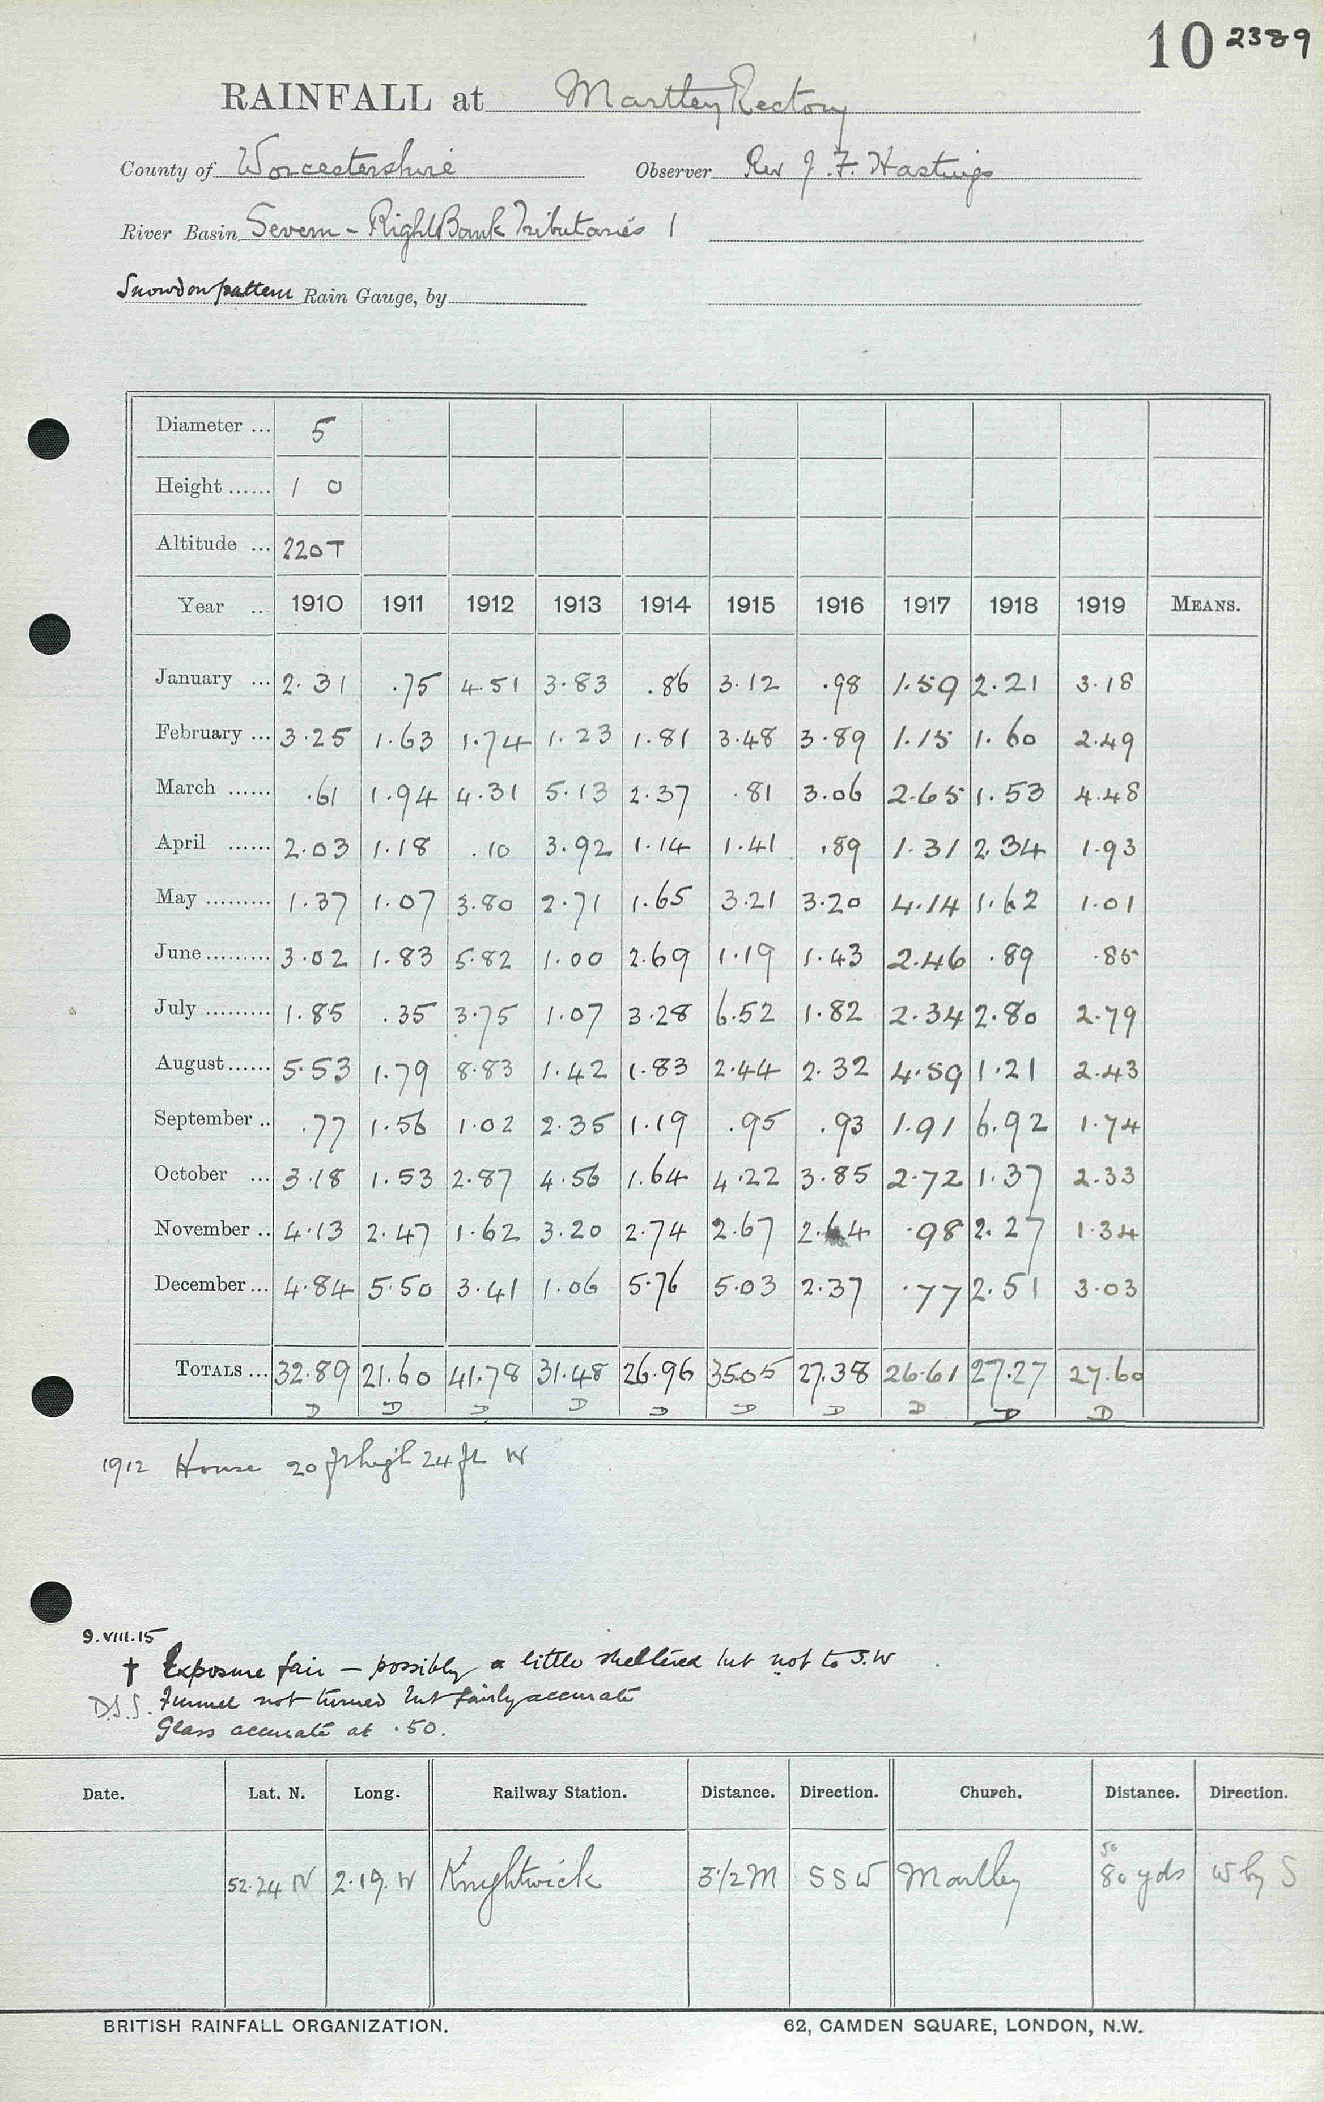 10 2389
RAINFALL at Martley Rectory
County of Worcestershire Observer Rev J. F. Hastings
River Basin Severn - Right Bank Tributaries 1
Snowdon pattern Rain Gauge, by
Diameter ... 5
Height ...... 1 0
Altitude ... 220T
Year ... 1910 1911 1912 1913 1914 1915 1916 1917 1918 1919 MEANS.
January ... 2.31 .75 4.51 3.83 .86 3.12 .98 1.59 2.21 3.18
February ... 3.25 1.63 1.74 1.23 1.81 3.48 3.89 1.15 1.60 2.49
March ...... .61 1.94 4.31 5.13 2.37 .81 3.06 2.65 1.53 4.48
April ...... 2.03 1.18 .10 3.92 1.14 1.41 .89 1.31 2.34 1.93
May ......... 1.37 1.07 3.80 2.71 1.65 3.21 3.20 4.14 1.62 1.01
June ......... 3.02 1.83 5.82 1.00 2.69 1.19 1.43 2.46 .89 .85
July ......... 1.85 .35 3.75 1.07 3.28 6.52 1.82 2.34 2.80 2.79
August ...... 5.53 1.79 8.83 1.42 1.83 2.44 2.32 4.59 1.21 2.43
September .. .77 1.56 1.02 2.35 1.19 .95 .93 1.91 6.92 1.74
October ... 3.18 1.53 2.87 4.56 1.64 4.22 3.85 2.72 1.37 2.33
November .. 4.13 2.47 1.62 3.20 2.74 2.67 2.64 .98 2.27 1.34
December ... 4.84 5.50 3.41 1.06 5.76 5.03 2.37 .77 2.51 3.03
TOTALS ... 32.89 21.60 41.78 31.48 26.96 35.05 27.38 26.61 27.27 27.60
D D D D D D D D D D
1912 House 20 ft high 24 ft W
9.VIII.15
† Exposure fair - possibly a little sheltered but not to S.W
D.S.S. Funnel not turned but fairly accurate
Glass accurate at .50.
Date. Lat. N. Long. Railway Station. Distance. Direction. Church. Distance. Direction.
50
52.24 N 2.19 W Knightwick 3 1/2 M S S W Martley 80 yds W by S
BRITISH RAINFALL ORGANIZATION. 62, CAMDEN SQUARE, LONDON, N.W.